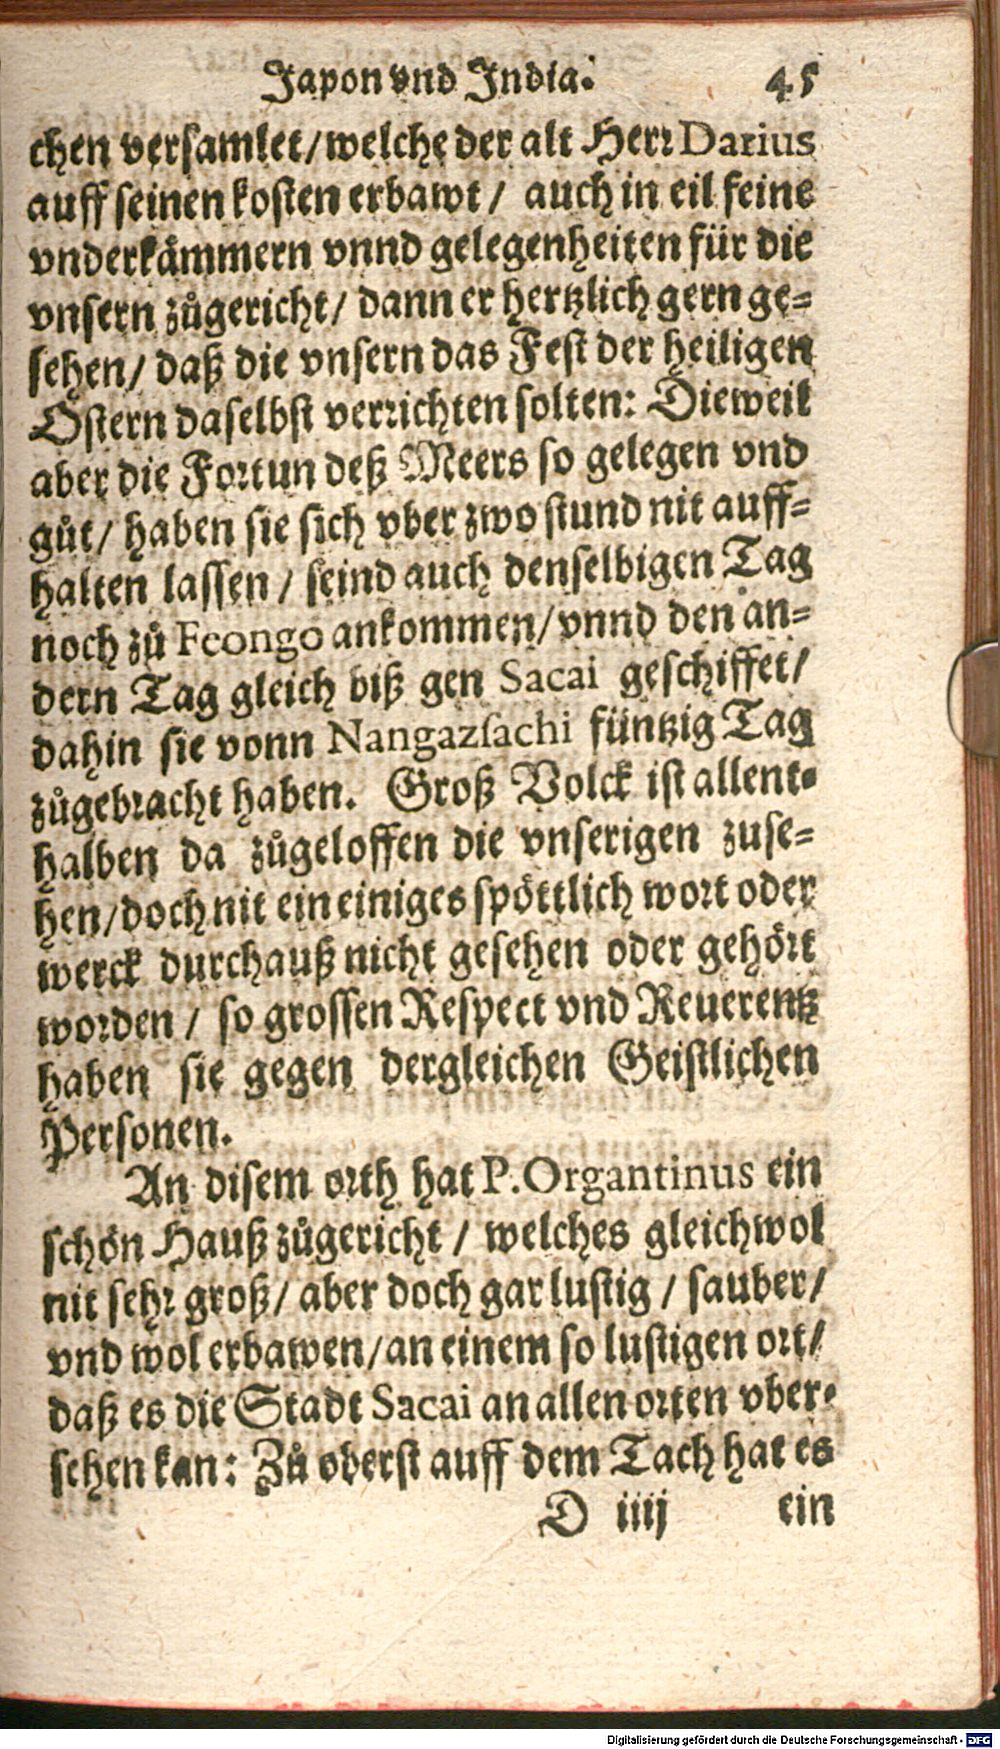 Japon vnd India. 45
chen versamlet/welche der alt Herr Darius
auff seinen kosten erbawt/ auch in eil feine
vnderkåmmern vnnd gelegenheiten für die
vnsern zůgericht/ dann er hertzlich gern ge=
sehen/ daß die vnsern das Fest der heiligen
Ostern daselbst verrichten solten: Dieweil
aber die Fortun deß Meers so gelegen vnd
gůt/ haben sie sich vber zwo stund nit auff=
halten lassen/ seind auch denselbigen Tag
noch zů Fcongo ankommen/vnnd den an=
dern Tag gleich biß gen Sacai geschiffet/
dahin sie vonn Nangazsachi füntzig Tag
zůgebracht haben. Groß Volck ist allent=
halben da zůgeloffen die vnserigen zuse=
hen/doch nit ein einiges spöttlich wort oder
werck durchauß nicht gesehen oder gehört
worden/ so grossen Respect vnd Reuerentz
haben sie gegen dergleichen Geistlichen
Personen.
An disem orth hat P. Organtinus ein
schön Hauß zůgericht/ welches gleichwol
nit sehr groß/ aber doch gar lustig/ sauber/
vnd wol erbawen/an einem so lustigen ort/
daß es die Stadt Sacai an allen orten vber=
sehen kan: Zů oberst auff dem Tach hat es
D iiij ein
Digitalisierung gefördert durch die Deutsche Forschungsgemeinschaft - DFG